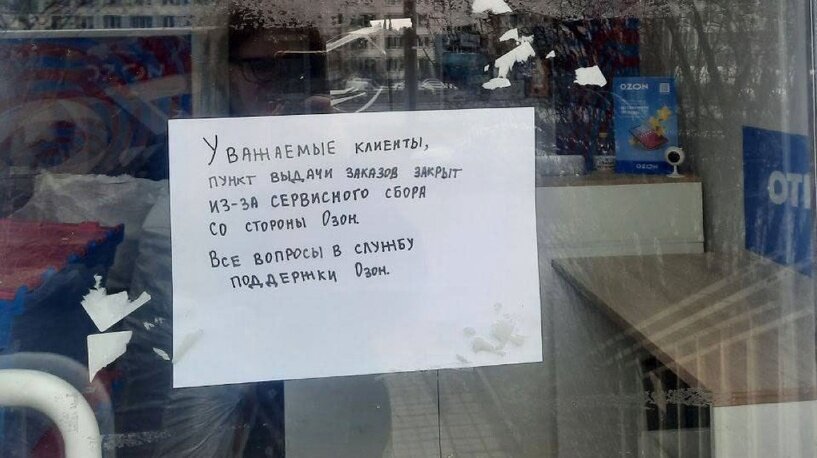 Уважаемые клиенты,
пункт выдачи заказов закрыт
из-за сервисного сбора
со стороны Озон.
Все вопросы в службу
поддержки Озон.
OZON
OZON